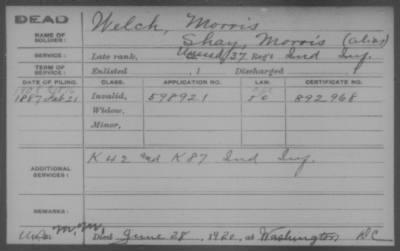 DEAD
NAME OF SOLDIER:
Welch, Morris
Shay, Morris (alias)
SERVICE:
Late rank, 37 Reg't Ind Inf.
TERM OF SERVICE:
Enlisted , 1 Discharged , 1
DATE OF FILING. CLASS. APPLICATION NO. LAW. CERTIFICATE NO.
1887 Feb 21 Invalid, 598921 892968
Widow,
Minor,
ADDITIONAL SERVICES:
K 42 and K 87 Ind Inf.
REMARKS:
Died June 28, 1920, at Washington DC